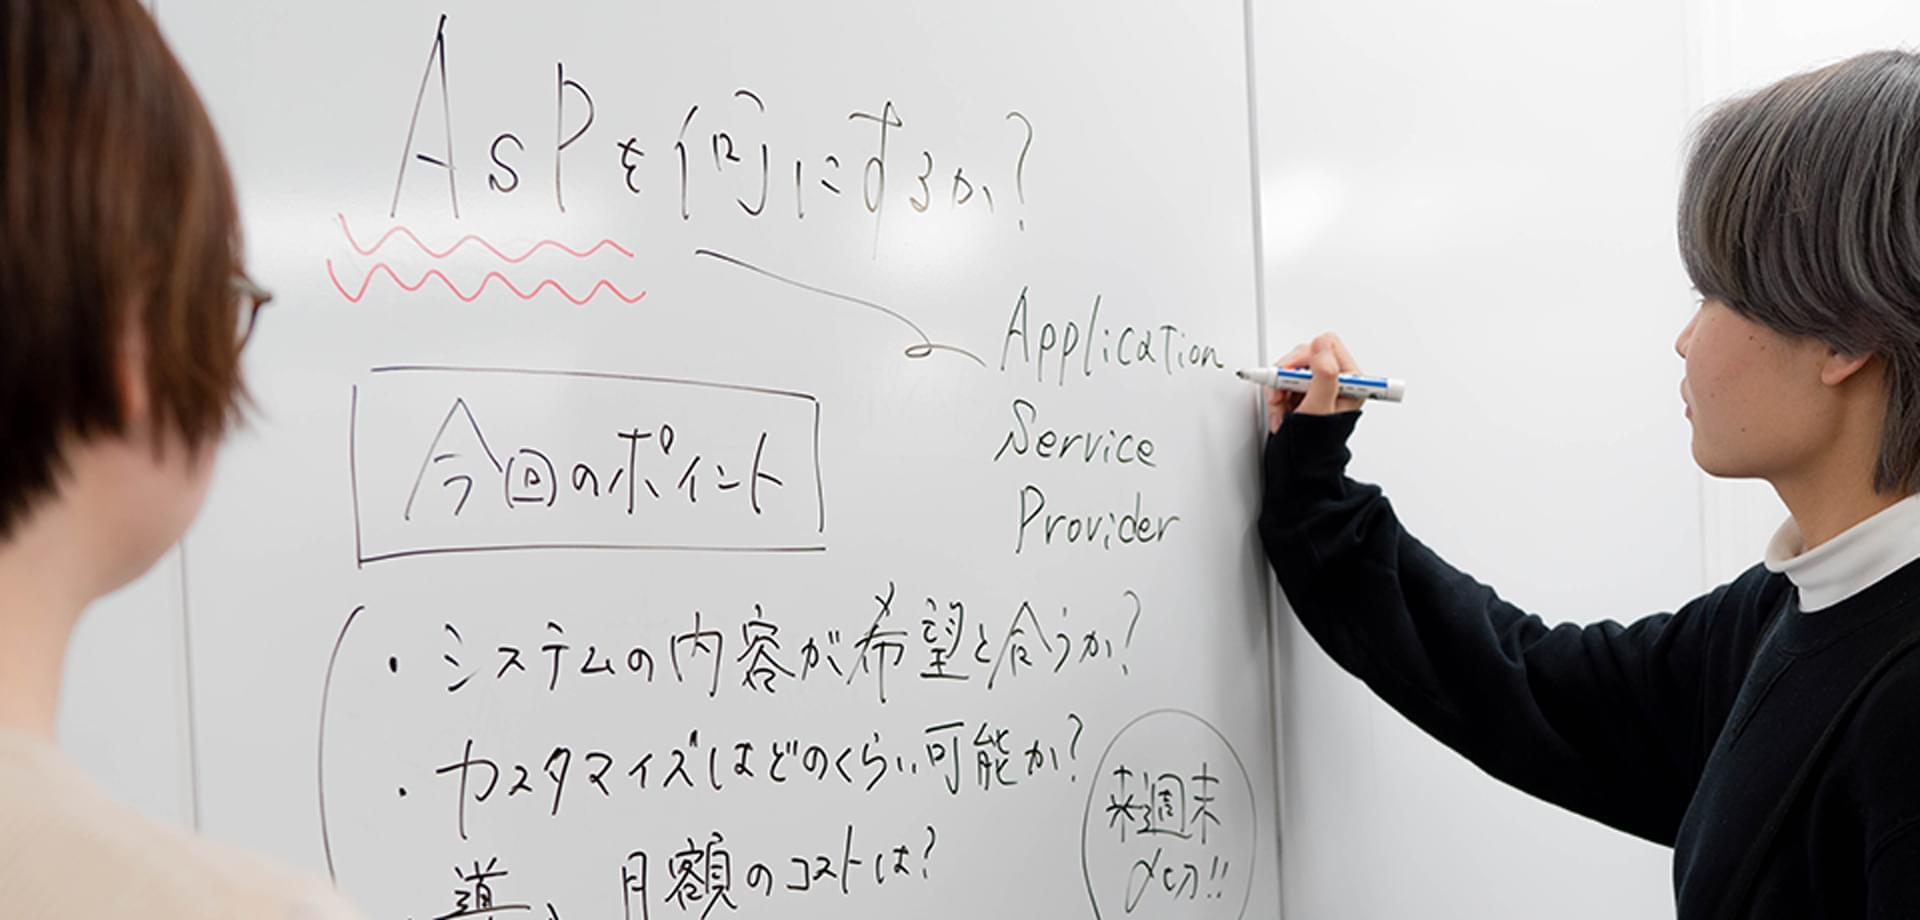 AsPを何にするか?
Application
Service
Provider
今回のポイント
・システムの内容が希望と合うか?
・カスタマイズはどのくらい可能か?
導、月額のコストは?
来週末
〆切!!